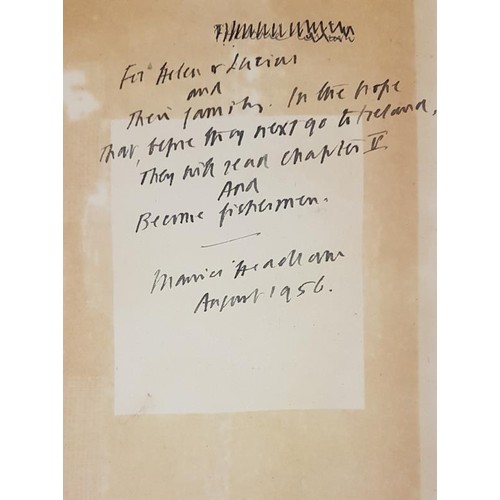 For Helen & Lucius
and
Their family. In the hope
that, before they next go to Ireland,
They will read chapter V
And
Become fishermen.
Maurice Headlam
August 1956.